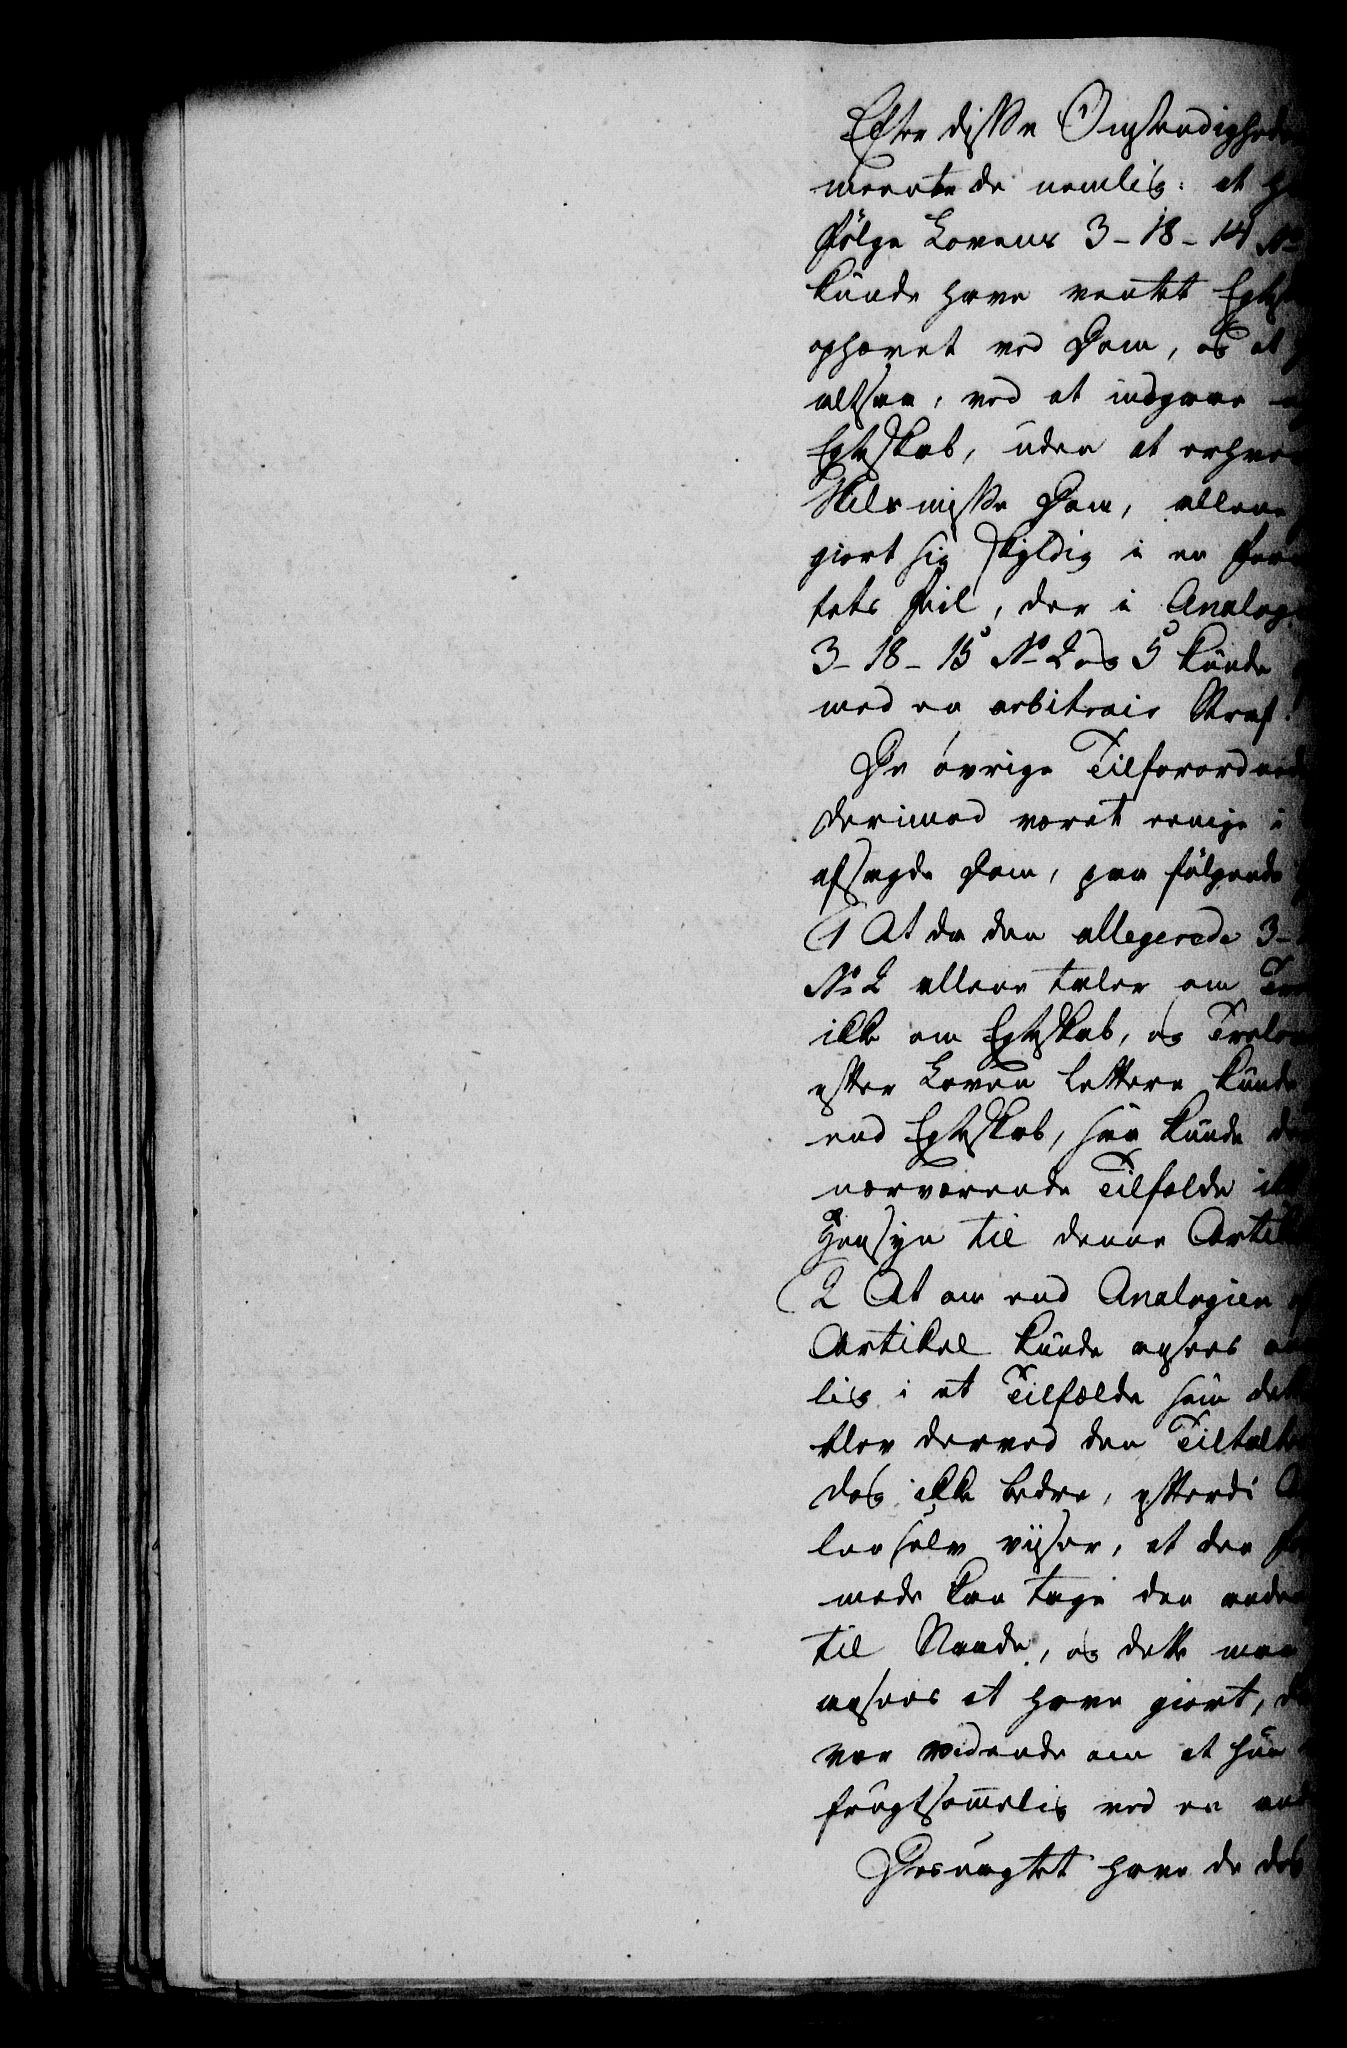 Efter disse Omstendighede
meente de nemlig: at h
følge Lovens 3-18-14 No
kunde have ventet Egtesk
ophævet ved Dom, og at
altsaa, ved at indgaae
Egteskab, uden at erhver
Skilsmisse Dom, alleene
giort sig skyldig i en For
tets Feil, der i Analog
3-18-15 No 2 og 5 kunde
med en arbitrair Straf.
De øvrige Tilforordnede
derimod været eenige i
afsagde Dom, paa følgende
1 At da den allegerede 3-
No 2 alleene taler om Tro
ikke om Egteskab, og Trolov
efter Loven lettere kunde
end Egteskab, saa kunde de
nærværende Tilfælde ikk
Hensyn til denne Artik
2 At om end Analogien af
Artikel kunde ansees
lig i et Tilfælde som dett
blev derved den Tiltalte
dog ikke bedre, efterdi
len selv viser, at den
mode kan tage den anden
til Naade, og dette maa
ansees at have giort, d
var vidende om at hun
frugtsommelig ved en and
Desuagtet have de dog